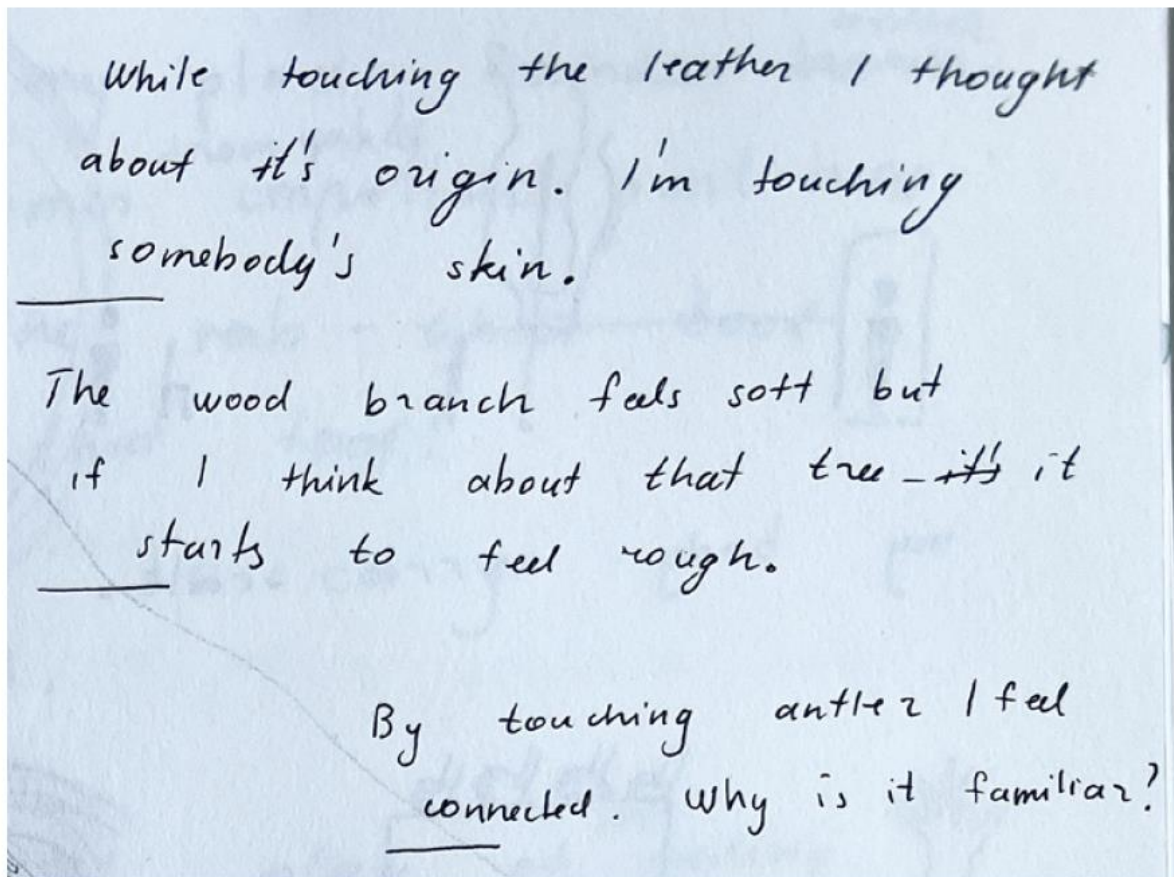 While touching the leather I thought
about it's origin. I'm touching
somebody's skin.
The wood branch feels soft but
if I think about that tree it's it
starts to feel rough.
By touching antler I feel
connected. Why is it familiar?